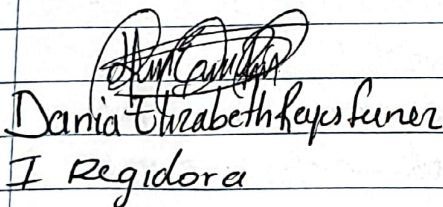 Dania Elizabeth Reyes Funez
I Regidora